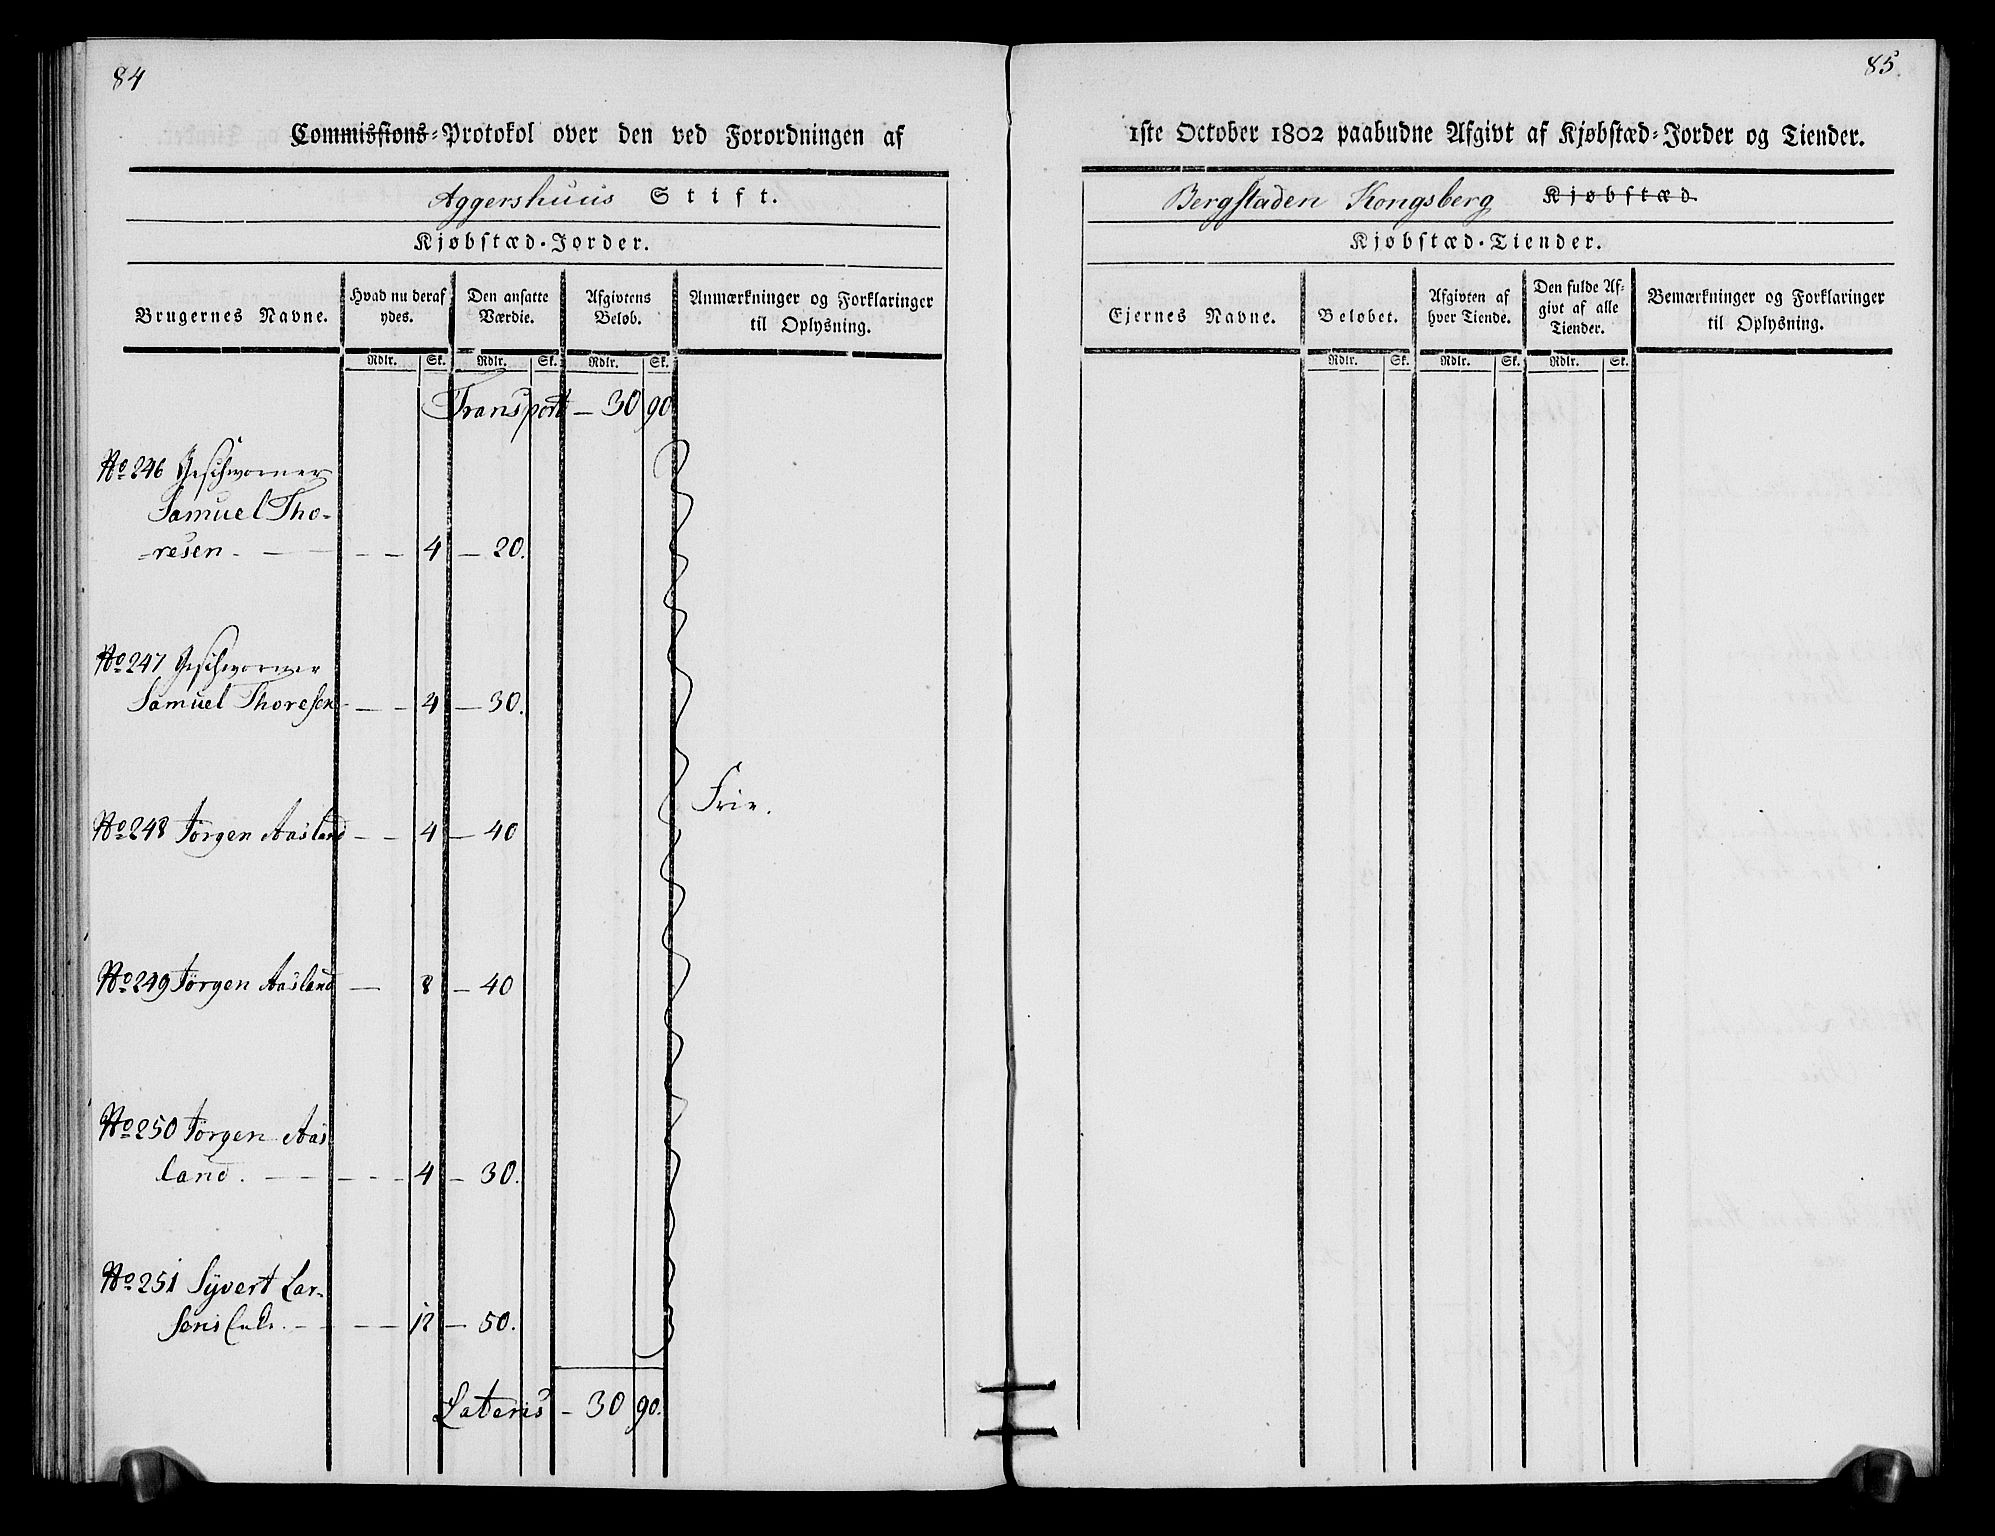 84
Commissions-Protokol over den ved Forordningen af
Aggershuus Stift.
Kjøbstæd-Jorder.
Brugernes Navne.
Hvad nu deraf
ydes.
Den ansatte
Værdie.
Afgivtens
Beløb.
Anmærkninger og Forklaringer
til Oplysning.
Rdlr. Sk. Rdlr. Sk. Rdlr. Sk.
Transport — 30 90
No 246 Geschworner
Samuel Tho-
-resen - — — — 4 — 20.
No 247 Geschworner
Samuel Thoresen - — - 4 — 30.
Frie.
No 248 Jørgen Aasland — - 4 — 40
No 249 Jørgen Aasland — 8 — 40
No 250 Jørgen Aas
land. — — - - - 4 — 30.
No 251 Syvert Lar-
sens - — - — 12 — 50.
Lateris — 30 90.
85.
1ste October 1802 paabudne Afgivt af Kjøbstæd-Jorder og Tiender.
Bergstaden Kongsberg Kjøbstæd.
Kjøbstæd-Tiender.
Ejernes Navne.
Beløbet.
Afgivten af
hver Tiende.
Den fulde Af-
givt af alle
Tiender.
Bemærkninger og Forklaringer
til Oplysning.
Rdlr. Sk. Rdlr. Sk. Rdlr. Sk.